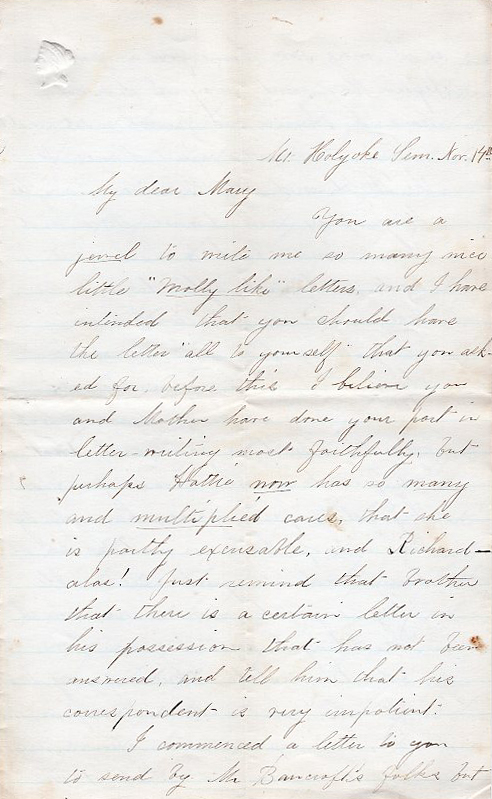 Mt. Holyoke Sem. Nov. 14th
My dear Mary
You are a
jewel to write me so many nice
little "Molly like" letters, and I have
intended that you should have
the letter "all to yourself" that you ask-
ed for, before this. I believe you
and Mother have done your part in
letter-writing most faithfully, but
perhaps Hattie now has so many
and multiplied cares, that she
is partly excusable, and Richard-
alas! Just remind that brother
that there is a certain letter in
his possession that has not been
answered, and tell him that his
correspondent is very impatient.
I commenced a letter to you
to send by Mr Bancroft's folks but